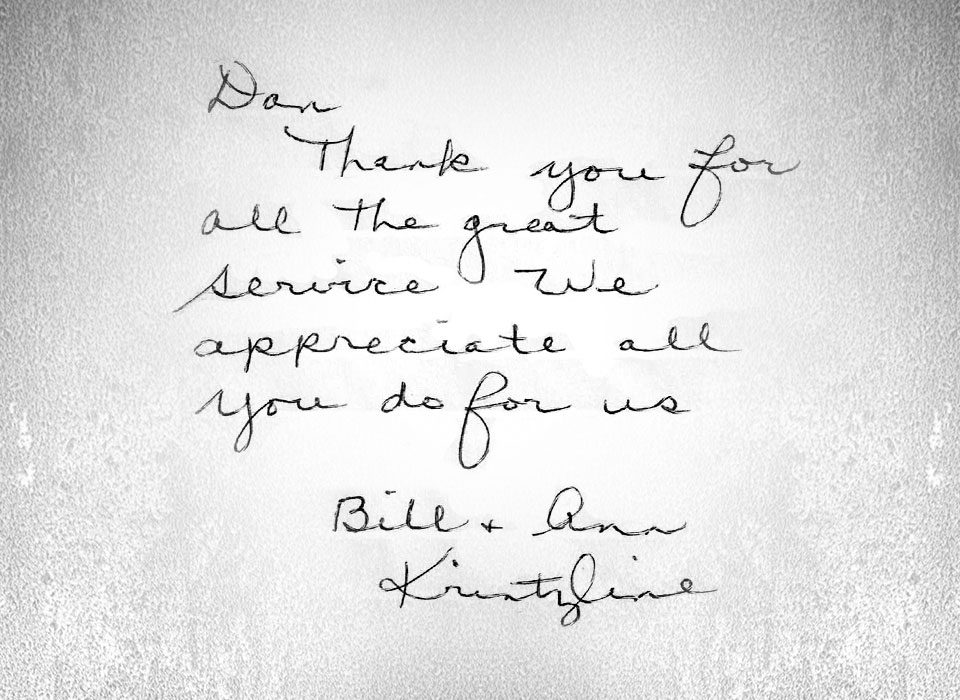 Dan
Thank you for
all the great
service We
appreciate all
you do for us
Bill + Ann
Krintzline